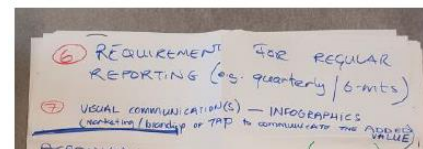 6 REQUIREMENT FOR REGULAR
REPORTING (e.g. quarterly / 6-mts)
7 VISUAL COMMUNICATION(S) — INFOGRAPHICS
(marketing / branding of TAP to communicate THE ADDED
VALUE)